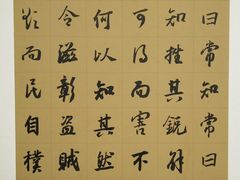 曰常知常曰
知挫其銳解
可得而害不
何以知其然
令滋彰盜賊
欲而民自樸